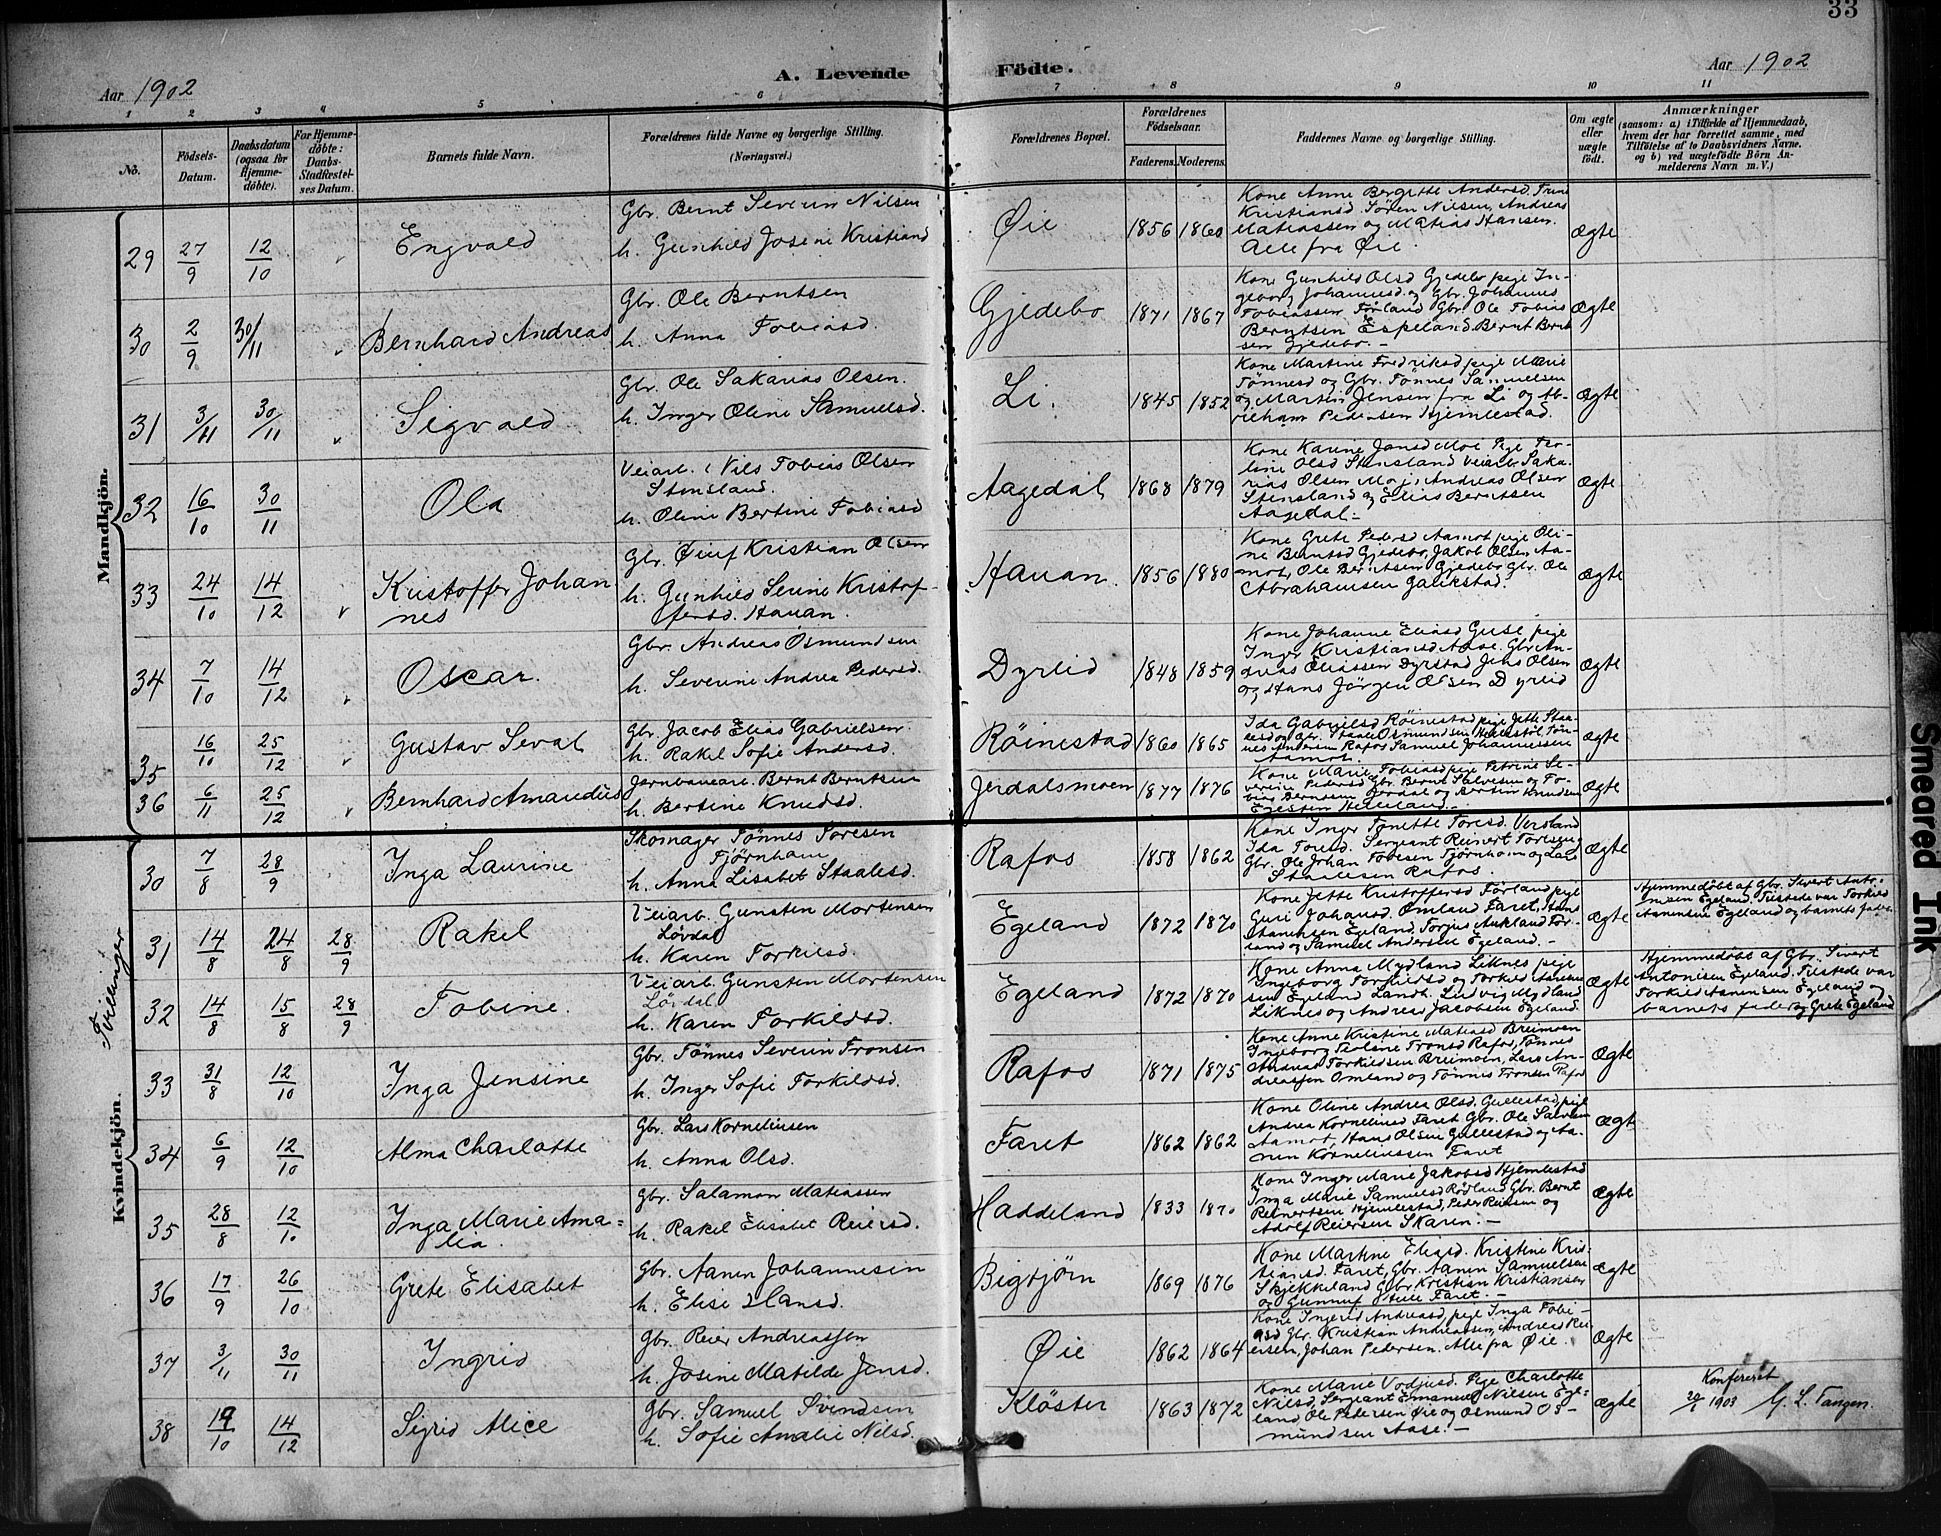 33
Aar 1902
A. Levende Födte.
Aar 1902
1 2 3 4 5 6 7 8 9 10 11
No.
Födsels-
Datum.
Daabsdatum
(ogsaa for
Hjemme-
døbte).
For Hjemme-
døbte:
Daabs-
Stadfæstel-
ses Datum.
Barnets fulde Navn.
Forældrenes fulde Navne og borgerlige Stilling.
(Næringsvei.)
Forældrenes Bopæl.
Forældrenes
Fødselsaar.
Faderens. Moderens.
Faddernes Navne og borgerlige Stilling.
Om ægte
eller
uægte
født.
Anmærkninger
(saasom: a) i Tilfælde af Hjemmedaab,
hvem der har forrettet samme, med
Tilføielse af to Daabsvidners Navne.
og b) ved uægtefødte Börn An-
melderens Navn m.V.)
Mandkjön.
29 27/9 12/10 Engvald
Gbr. Bernt Severin Nilsen
h. Gunhild Josine Kristiansd
Øie 1856 1860
Kone Anne Bergitte Andersd. Trine
Kristiansd. Søren Nilsen, Andreas
Matiassen og Matias Hansen.
Alle fra Øie
Ægte
30 2/9 30/11 Bernhard Andreas
Gbr. Ole Berntsen
h. Anna Tobiasd.
Gjedebo 1871 1867
Kone Gunhild Olsd Gjedebo pige In-
geborg Johannesd. og Gbr. Johannes
Tobiassen Førland Gbr. Ole Tobias
Berntsen Espeland Bernt Bernt
sen Gjedebo. -
Ægte
31 3/11 30/11 Sigvald
Gbr. Ole Sakarias Olsen.
h. Inger Oline Samuelsd.
Li. 1845 1852
Kone Martine Fredriksd pige Marie
Tønnesd og Gbr. Tønnes Samuelsen
og Martin Jensen fra Li og Ab-
raham Pedersen Hjemlestad.
Ægte
32 16/10 30/11 Ola
Veiarb. Nils Tobias Olsen
Stensland.
h. Oline Bertine Tobiasd
Aagedal 1868 1879
Kone Karine Jonsd Moi Pige Ter-
line Olsd Stensland veiarb. Saka-
rias Olsen Moi, Andreas Olsen
Stensland og Elias Berntsen
Aagedal. -
Ægte
33 24/10 14/12 Kristoffer Johan
nes
Gbr. Øiuf Kristian Olsen
h. Gunhild Serine Kristof-
fersd. Hauan.
Hauan. 1856 1880
Kone Grete Pedersd Aamot pige Oli-
ne Berntsd Gjedebo, Jakob Olsen Aa-
mot, Ole Berntsen Gjedebo Gbr. Ole
Abrahamsen Gaukstad.
Ægte
34 7/10 14/12 Oscar.
Gbr. Andreas Osmundsen
h. Severine Andrea Pedersd.
Dyrlid 1848 1859
Kone Johanne Eliasd Guse pige
Inger Kristiansd Aase. Gbr An-
dreas Eliassen Dyrstad Jens Olsen
og Hans Jörgen Olsen Dyrlid
Ægte
35 16/10 25/12 Gustav Seval
Gbr. Jacob Elias Gabrielsen.
h. Rakel Sofie Andersd.
Röinestad 1860 1865
Ida Gabrielsd Røinestad pige Jette Staa-
lesd og Gbr. Staale Osmundsen Helle Tøn-
nes Andersen Rafos Samuel Johannessen
Aamot.
Ægte
36 6/11 25/12 Bernhard Amandus
Jernbanearb. Bernt Berntsen
h. Bertine Knudsd.
Jerdalsmoen 1877 1876
Kone Marie Tobiasd pige Petrine Se-
verine Pedersd Gbr. Bernt Salvesen og To-
bias Berntsen Jerdal og Bertin Knudsen
Ægte
Kvindekjön.
Tvillinger
30 7/8 28/9 Inga Laurine
Skomager Tönnes Toresen
Tjørnham
h. Anna Lisabet Staalesd.
Rafos 1858 1862
Kone Inger Tonette Toresd. Versland
Ida Toresd. Sergeant Reinert Toresen,
Gbr. Ole Johan Toresen Tjørnhom og Lars
Staalesen Rafos.
Ægte
31 14/8 24/8 28/9 Rakel
Veiarb. Gunsten Mortensen
Løvdal
h. Karen Torkilsd.
Egeland 1872 1870
Kone Jette Kristoffersd Førland pige
Guri Johansd. Omland Faret, Hans
Aanensen Egeland, Torgus Aukland Før-
land og Samuel Andersen Egeland. -
Ægte
Hjemmedöbt af Gbr. Sivert Anto-
nisen Egeland, Tilstede var Torkild
Aanensen Egeland og barnets fader
32 14/8 15/8 28/9 Tobine.
Veiarb. Gunsten Mortensen
Løvdal
h. Karen Torkildsd.
Egeland 1872 1870
Kone Anna Mydland Liknes pige
Ingeborg Torkildsd og Torkild Aanen-
sen Egeland Landh. Ludvig Mydland
Liknes og Andreas Jacobsen Egeland.
Ægte
Hjemmedöbt af Gbr. Sivert
Antonisen Egeland. Tilstede var
Torkild Aanensen Egeland og
barnets fader og Grete Egeland
33 31/8 12/10 Inga Jensine
Gbr. Tönnes Severin Tronsen
h. Inger Sofie Torkildsd.
Rafos 1871 1875
Kone Anne Kristine Matiasd Breimoen
Ingeborg Teoline Tronsd Rafos, Tønnes
Andreas Torkildsen Breimoen, Lars An-
dreassen Omland og Tønnes Tronsen Rafos
Ægte
34 6/9 12/10 Alma Charlotte
Gbr. Lars Korneliusen
h. Anna Olsd.
Faret 1862 1862
Kone Oline Andrea Olsd. Gullestad pige
Andrea Korneliusd Faret Gbr. Ole Salvesen
Aamot, Hans Olsen Gullestad og Aa-
nen Korneliussen Faret
Ægte
35 28/8 12/10 Inga Marie Ama-
lia.
Gbr. Salamon Matiassen
h. Rakel Elisabet Reiersd.
Haddeland 1833 1870
Kone Inger Marie Jakobsd Hjemlestad
Inga Marie Samuelsd Rødland Gbr. Bernt
Reinertsen Hjemlestad, Peder Reiersen og
Adolf Reiersen Skaren. -
Ægte
36 17/9 26/10 Grete Elisabet
Gbr. Aanen Johannesen
h. Elise Hansd.
Bigtjørn 1869 1876
Kone Martine Eliasd. Kristine Kris-
tiansd. Faret, Gbr. Aanen Samuelsen
Skjekkeland Gbr. Kristian Kristiansen
og Gunnuf Helle Faret. -
Ægte
37 3/11 30/11 Ingrid
Gbr. Reier Andreassen
h. Josine Matilde Jensd.
Øie 1862 1864
Kone Ingerid Andreasd, pige Inga Tobi-
asd Gbr. Kristian Andreassen, Andreas Rei-
ersen, Johan Pedersen. Alle fra Øie.
Ægte
38 19/10 14/12 Sigrid Alice
Gbr. Samuel Svindsen
h. Sofie Amalie Nilsd.
Klöster 1863 1872
Kone Marie Vodjusd. Pige Charlotte
Nilsd, Sergeant Emanuel Nilsen Ege-
land, Ole Petersen Øie og Osmund Os-
mundsen Aase. -
Ægte
Konfereret
1903 G. L. Tangen.
Smeared Ink